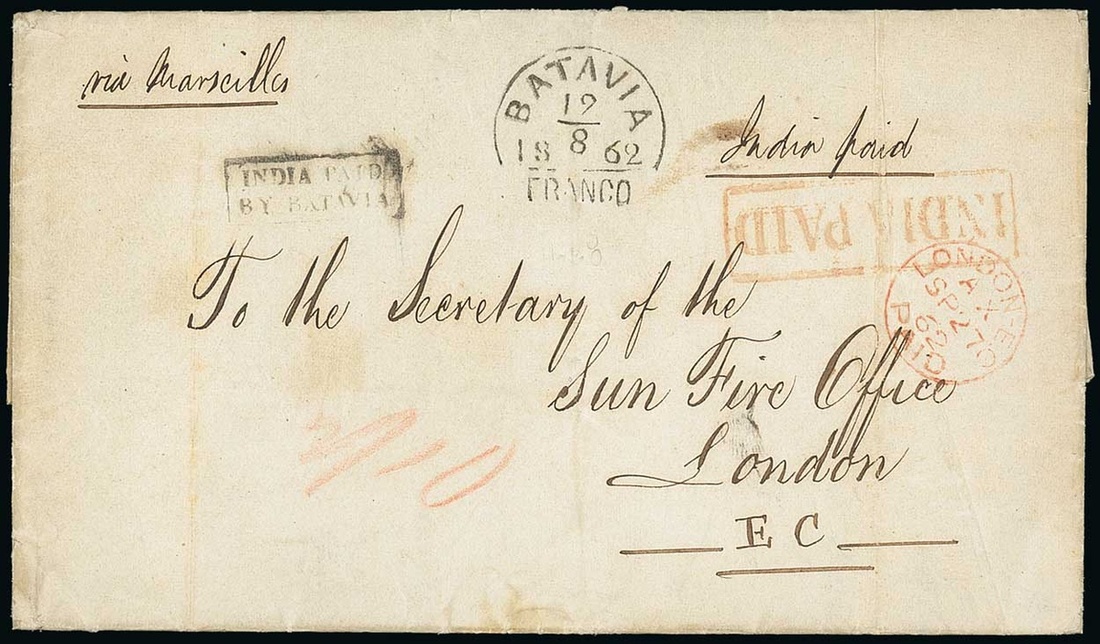 via Marseilles
BATAVIA
12
8
18 62
FRANCO
India paid
INDIA PAID
BY BATAVIA
INDIA PAID
LONDON-EC
A X
SP 27
62
PAID
To the Secretary of the
Sun Fire Office
London
E C